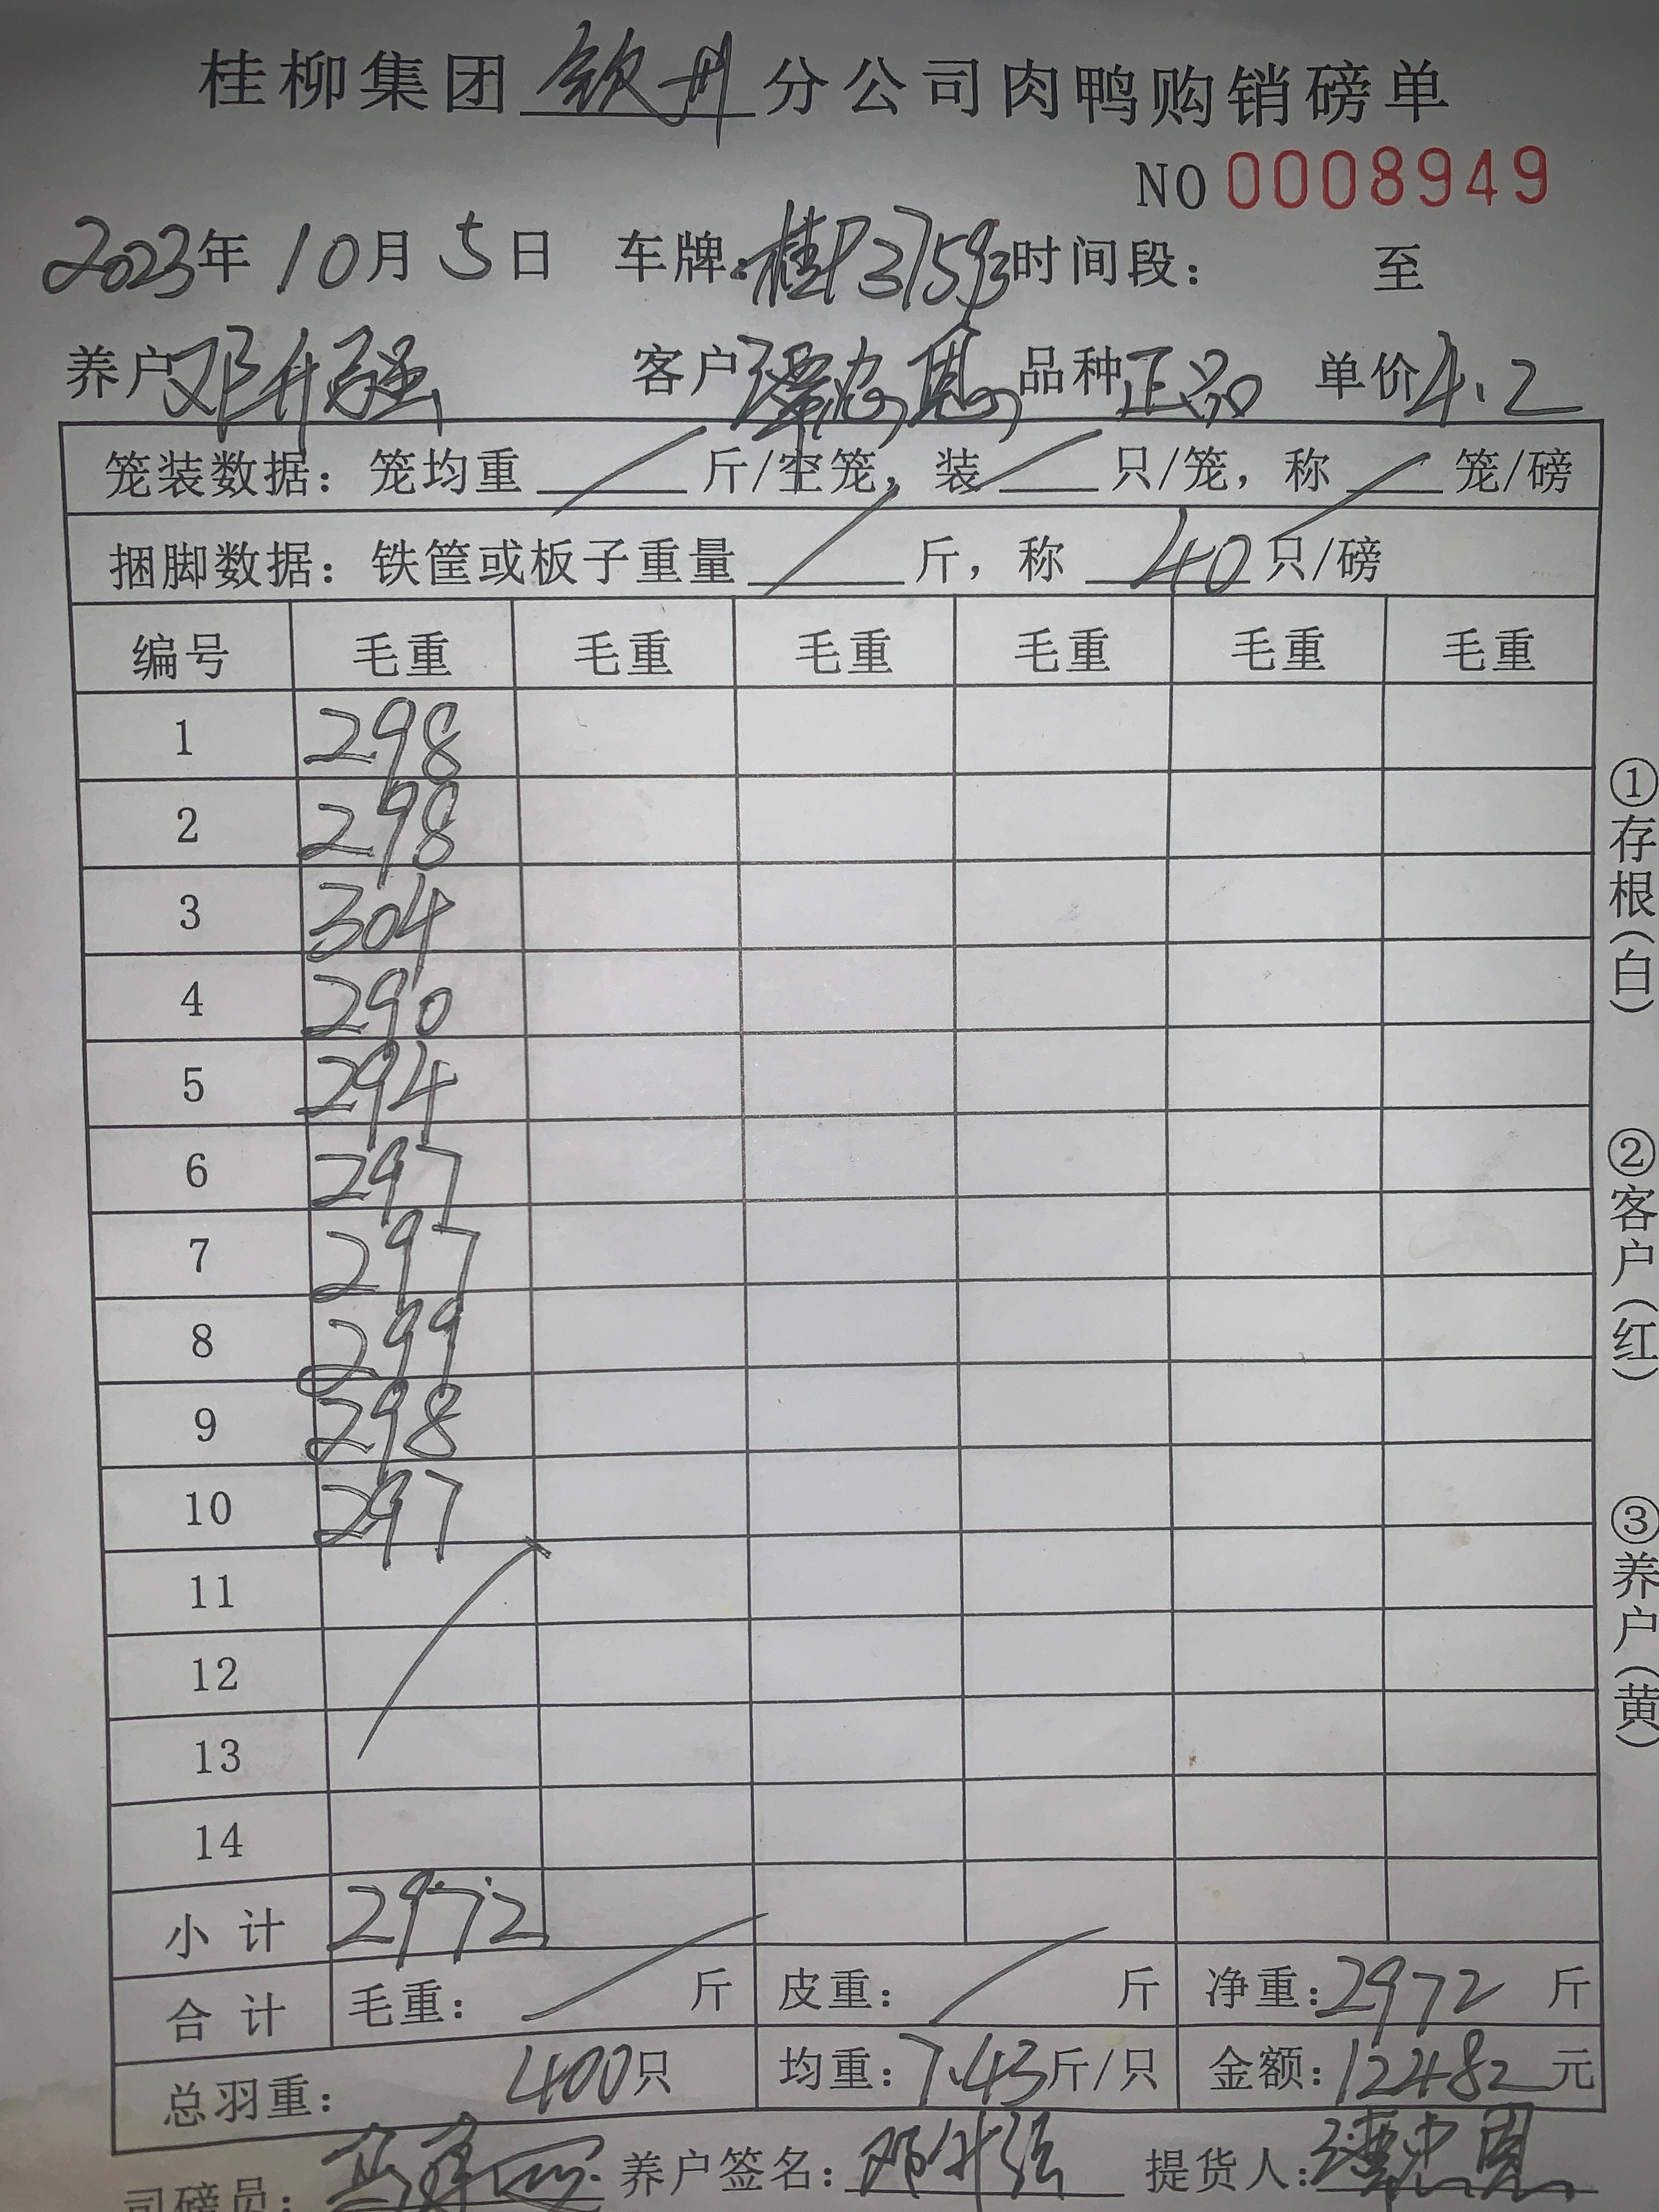 桂柳集团 钦州 分公司肉鸭购销磅单
NO 0008949
2023年 10月 5日 车牌:桂P37593 时间段: 至
养户 邓升强 客户 品种 正品 单价 4.2
笼装数据: 笼均重 / 斤/空笼, 装 / 只/笼, 称 / 笼/磅
捆脚数据: 铁筐或板子重量 / 斤, 称 40 只/磅
编号 毛重 毛重 毛重 毛重 毛重 毛重
1 298
2 298
3 304
4 290
5 294
6 297
7 297
8 299
9 298
10 297
11
12
13
14
小计 2972
合计 毛重: / 斤 皮重: / 斤 净重:2972 斤
总羽重: 400只 均重:7.43斤/只 金额:12482元
司磅员: 养户签名:邓升强 提货人:
①存根(白)
②客户(红)
③养户(黄)